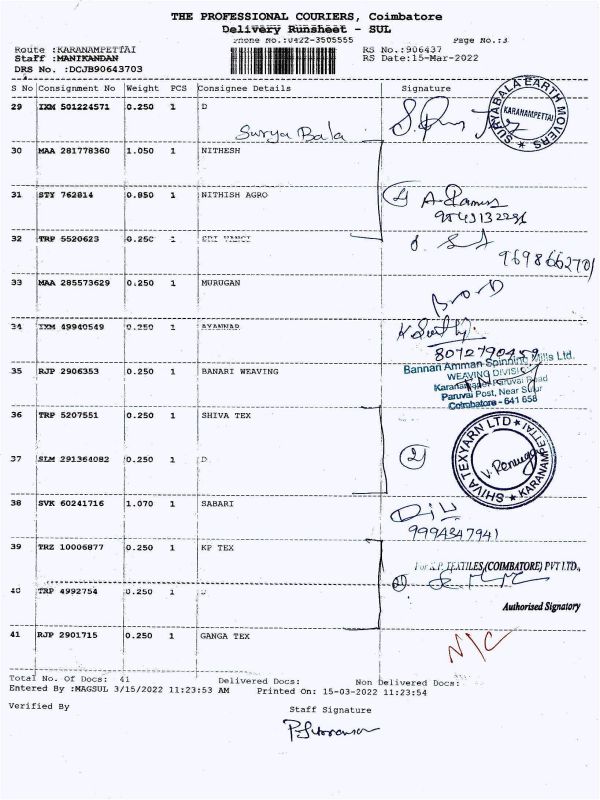 THE PROFESSIONAL COURIERS, Coimbatore
Delivery Runsheet - SUL
Phone No.:0422-3505555 Page No.:3
Route :KARANAMPETTAI RS No.:906437
Staff :MANIKANDAN RS Date:15-Mar-2022
DRS No. :DCJB90643703
S No Consignment No Weight PCS Consignee Details Signature
29 IXM 501224571 0.250 1 D
Surya Bala
SURYABALA EARTH MOVERS
KARANAMPETTAI
30 MAA 281778360 1.050 1 NITHESH
31 STY 762814 0.850 1 NITHISH AGRO
32 TRP 5520623 0.250 1 SRI VAMCI
9698662701
33 MAA 285573629 0.250 1 MURUGAN
34 IXM 49940549 0.250 1 AYANNAR
8072790459
35 RJP 2906353 0.250 1 BANARI WEAVING
Bannari Amman Spinning Mills Ltd.
WEAVING DIVISION
Karanampet Paruvai Road
Paruvai Post, Near Sulur
Coimbatore - 641 658
36 TRP 5207551 0.250 1 SHIVA TEX
SHIVA TEXYARN LTD
KARANAMPETTAI
V. Renuga
37 SLM 291364082 0.250 1 D
2
38 SVK 60241716 1.070 1 SABARI
9994347941
39 TRZ 10006877 0.250 1 KP TEX
For K.P. TEXTILES (COIMBATORE) PVT LTD.,
40 TRP 4992754 0.250 1 D
Authorised Signatory
41 RJP 2901715 0.250 1 GANGA TEX
N/C
Total No. Of Docs: 41 Delivered Docs: Non Delivered Docs:
Entered By :MAGSUL 3/15/2022 11:23:53 AM Printed On: 15-03-2022 11:23:54
Verified By Staff Signature